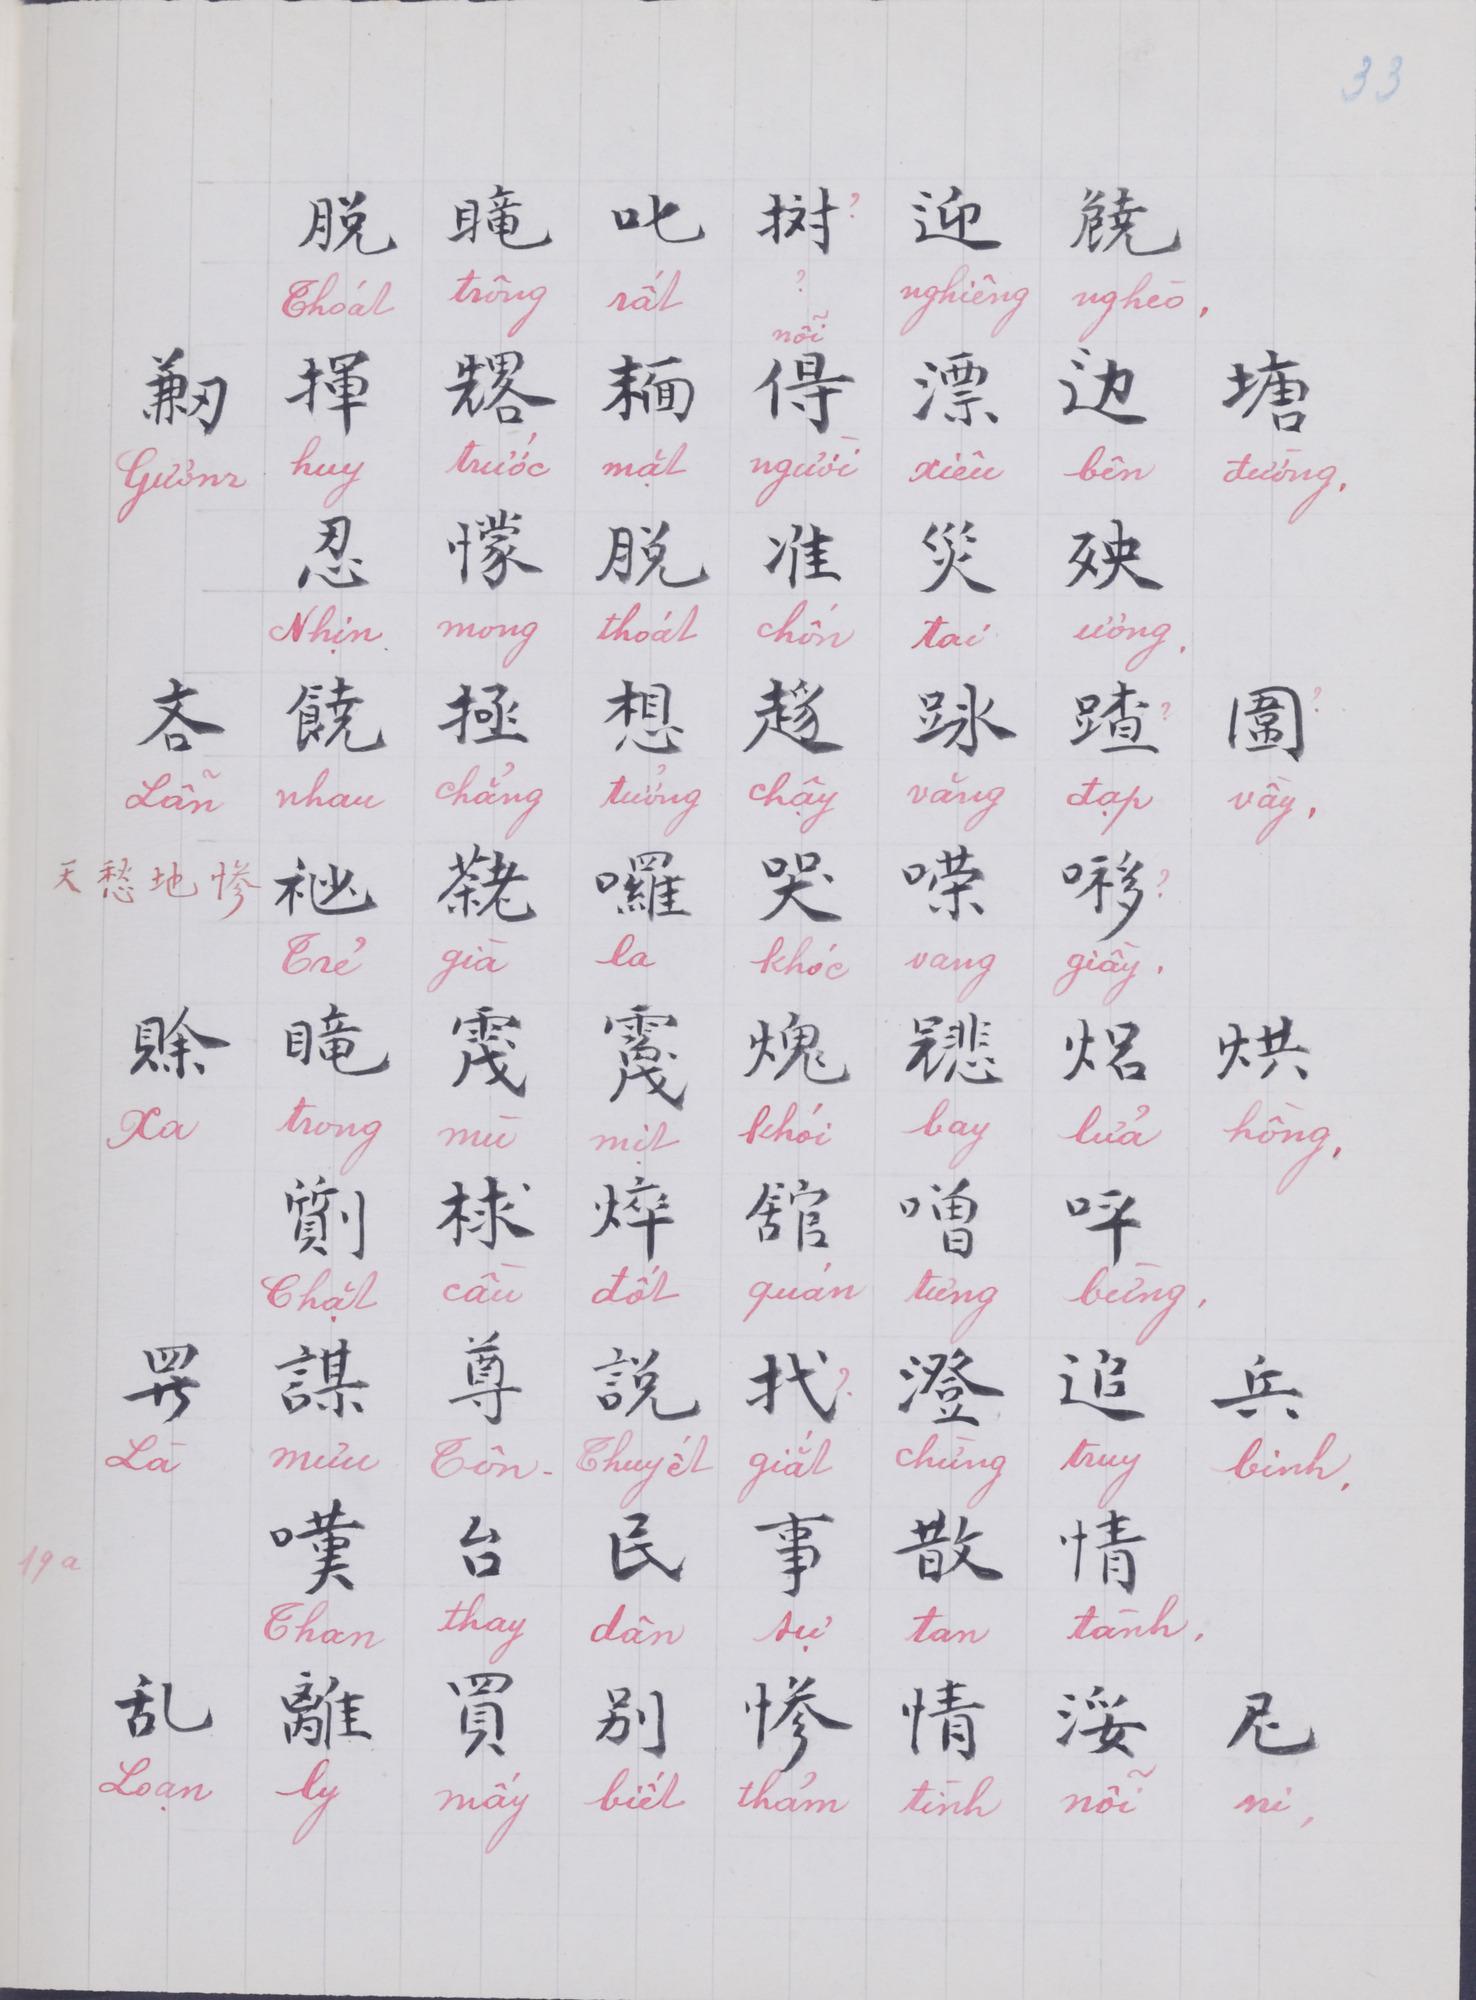 33
脱 𥊚 叱 𢲨 迎 饒
Thoát trông rất ? nỗi nghiêng nghèo,
揮 得 漂 边 塘
Gươm huy trước mặt người xiêu bên đường,
忍 懞 脱 准 災 殃
Nhịn mong thoát chốn tai ương,
吝 饒 拯 想 趍 踚 蹅 圍
Lẫn nhau chẳng tưởng chạy văng đạp vầy,
天 愁 地 慘
囉 哭 嶸
Trẻ già la khóc vang giầy,
賒 𥊚 𩂟 煙 㷋 烘
Xa trong mù mịt khói bay lửa hồng,
劕 梂 焠 舘 噌 呯
Chặt cầu đốt quán tưng bừng,
𦋦 謀 尊 説 找 澄 追 兵
Là mưu Tôn-Thuyết giắt chừng truy binh,
19a
嘆 台 民 事 散 情
Than thay dân sự tan tành,
乱 離 買 别 慘 情 浽 尼
Loạn ly mấy biết thảm tình nỗi ni,